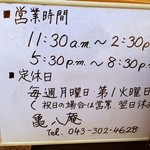 ■営業時間
11:30a.m~2:30p
5:30p.m~8:30p.
■定休日
毎週月曜日・第1火曜日
(祝日の場合は営業、翌日休み
亀八庵
Tel. 043-302-4628